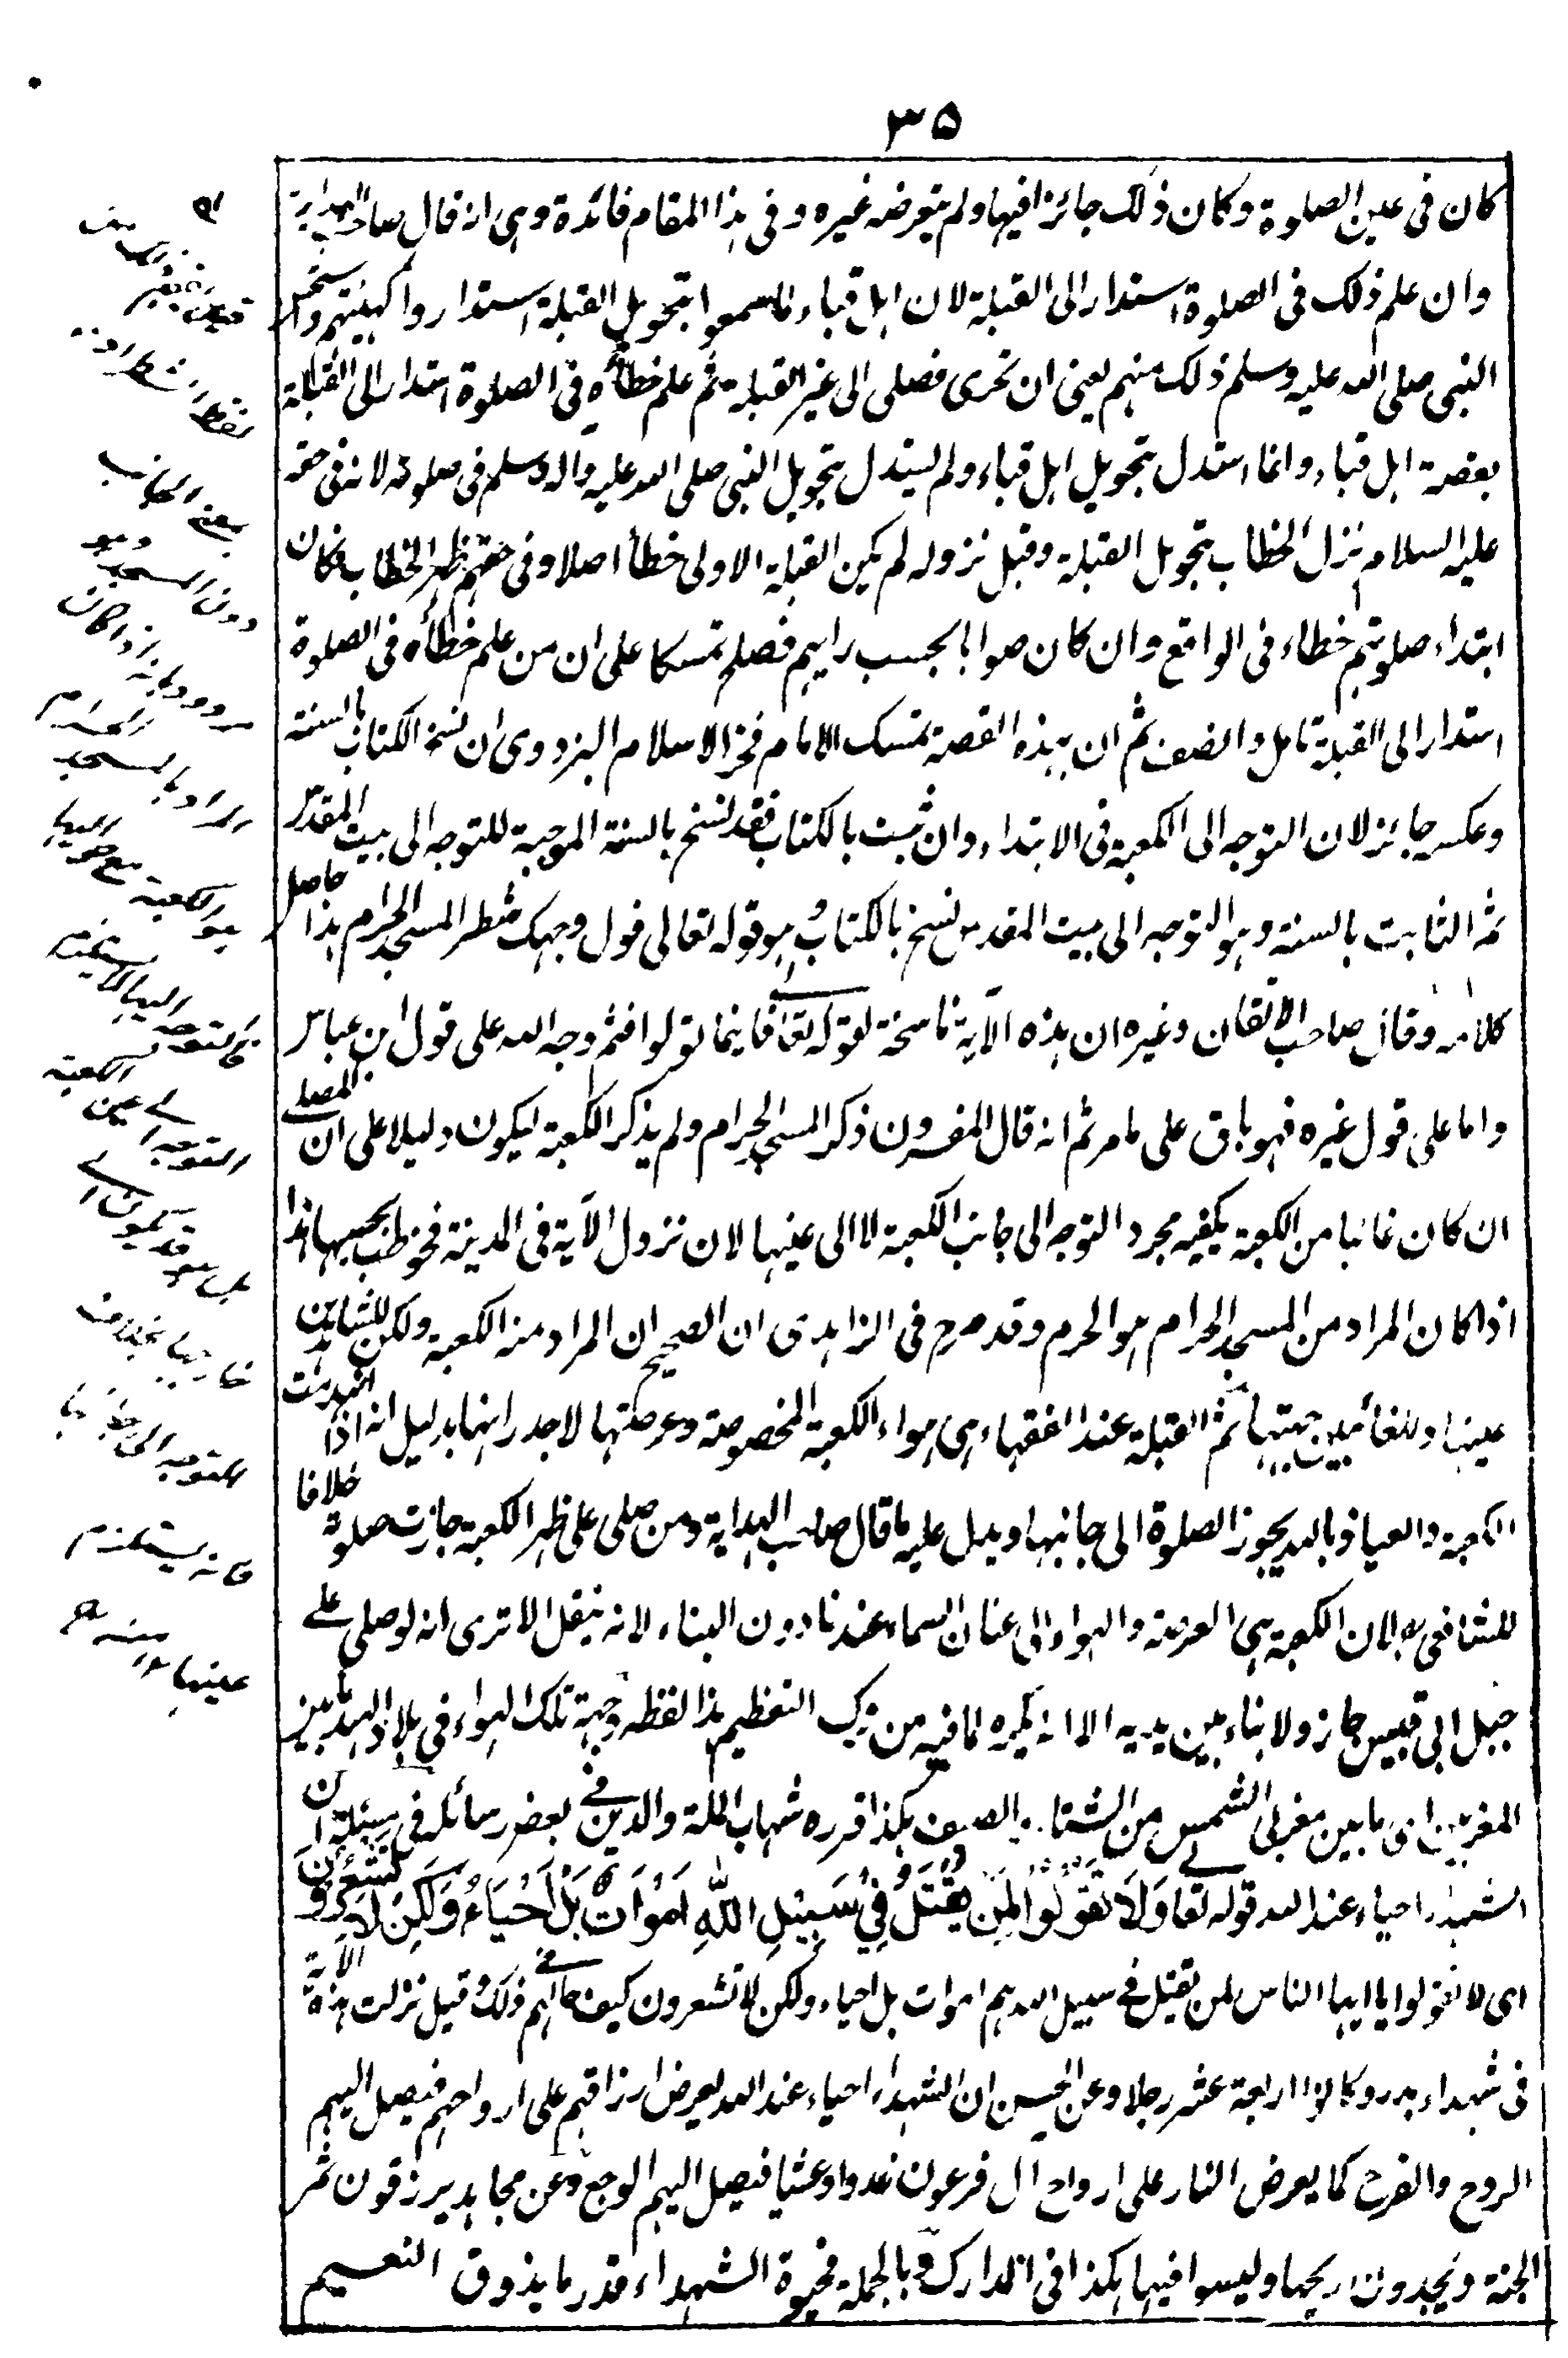 ۳۵
كان فى عين الصلوة وكان ذلك جائزا فيها ولم يتعرضه غيره وفى هذا المقام فائدة وهى انه قال صاحب الهداية
وان علم ذلك فى الصلوة استدار الى القبلة لان اهل قباء لما سمعوا بتحويل القبلة استداروا كهيئتهم واستحسن
النبى صلى الله عليه وسلم ذلك منهم يعنى ان تحرى فصلى الى غير القبلة ثم علم خطأه فى الصلوة استدار الى القبلة
بقصة اهل قباء وانما استدل بتحويل اهل قباء ولم يستدل بتحويل النبى صلى الله عليه واله وسلم فى صلوته لانه فى حقه
عليه السلام نزل الخطاب بتحويل القبلة وقبل نزوله لم يكن القبلة الاولى خطأ اصلا وفى حقهم ظهر الخطاب فكان
ابتداء صلوتهم خطاء فى الواقع وان كان صوابا بحسب رايهم فصلح تمسكا على ان من علم خطأه فى الصلوة
استدار الى القبلة تامل وانصف ثم ان بهذه القصة تمسك الامام فخر الاسلام البزدوى ان نسخ الكتاب بالسنة
وعكسه جائز لان التوجه الى الكعبة فى الابتداء وان ثبت بالكتاب فقد نسخ بالسنة الموجبة للتوجه الى بيت المقدس
ثم الثابت بالسنة وهو التوجه الى بيت المقدس نسخ بالكتاب وهو قوله تعالى فول وجهك شطر المسجد الحرام هذا حاصل
كلامه وقال صاحب الاتقان وغيره ان هذه الآية ناسخة لقوله تعا فاينما تولوا فثم وجه الله على قول ابن عباس
واما على قول غيره فهو باق على ما مر ثم انه قال المفسرون ذكر المسجد الحرام ولم يذكر الكعبة ليكون دليلا على ان المصلى
ان كان غائبا من الكعبة يكفيه مجرد التوجه الى جانب الكعبة لا الى عينها لان نزول الآية فى المدينة فخوطب بحسبها هذا
اذا كان المراد من المسجد الحرام هو الحرم وقد صرح فى الزاهدى ان الصحيح ان المراد منه الكعبة ولكن للشاهدين
عينها وللغائبين جهتها ثم القبلة عند الفقهاء هى هواء الكعبة المخصوصة وعرصتها لا جدرانها بدليل انه اذا انهدمت
الكعبة والعياذ بالله يجوز الصلوة الى جانبها ويدل عليه ما قال صاحب الهداية ومن صلى على ظهر الكعبة جازت صلوته خلافا
للشافعى رح لان الكعبة هى العرصة والهواء الى عنان السماء عندنا دون البناء لانه ينقل الا ترى انه لو صلى على
جبل ابى قبيس جاز ولا بناء بين يديه الا انه يكره لما فيه من ترك التعظيم هذا لفظه وجهة تلك الهواء فى بلاد الهند بين
المغربين اى ما بين مغربى الشمس من الشتاء والصيف هكذا قرره شهاب الملة والدين فى بعض رسائله فى مسئلة ان
الشهداء احياء عند الله قوله تعا وَلَا تَقُولُوا لِمَن يُقْتَلُ فِي سَبِيلِ اللهِ اَمْوَاتٌ بَلْ اَحْيَاءٌ وَلَكِنْ لَا تَشْعُرُونَ
اى لا تقولوا يا ايها الناس لمن يقتل فى سبيل الله هم اموات بل احياء ولكن لا تشعرون كيف حالهم فى ذلك قيل نزلت هذه الاية
فى شهداء بدر وكانوا اربعة عشر رجلا وعن الحسن ان الشهداء احياء عند الله يعرض ارزاقهم على ارواحهم فيصل اليهم
الروح والفرح كما يعرض النار على ارواح ال فرعون غدوا وعشيا فيصل اليهم الوجع وعن مجاهد يرزقون ثمر
الجنة ويجدون ريحها وليسوا فيها هكذا فى المدارك وبالجملة فحيوة الشهداء قدر ما يذوق النعيم
يعنى الجانب
دون المسجد وهو
المراد بالمسجد
الحرام
هو الكعبة
التوجه الى عين الكعبة
فانه يستلزم
عينها